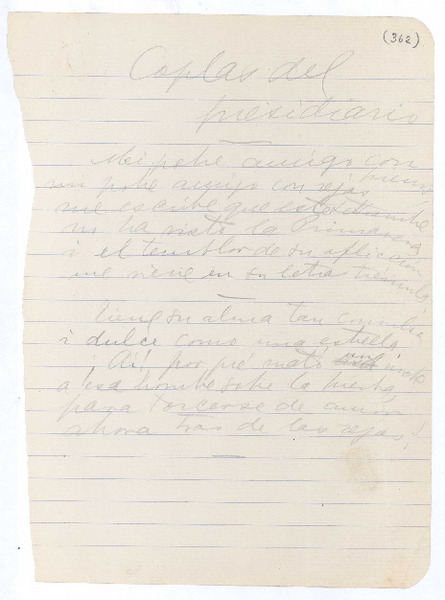 (362)
Coplas del
presidiario
Mi pobre amigo con hierros
mi pobre amigo con rejas
me escribe que este
ni ha visto la Primavera
i el temblor de su aflicción
me viene en su letra trémula
Tiene su alma tan
i dulce como una estrella
¡Ai! por qué mató
a ese hombre sobre la
para torcerse de amor
ahora tras de las rejas!